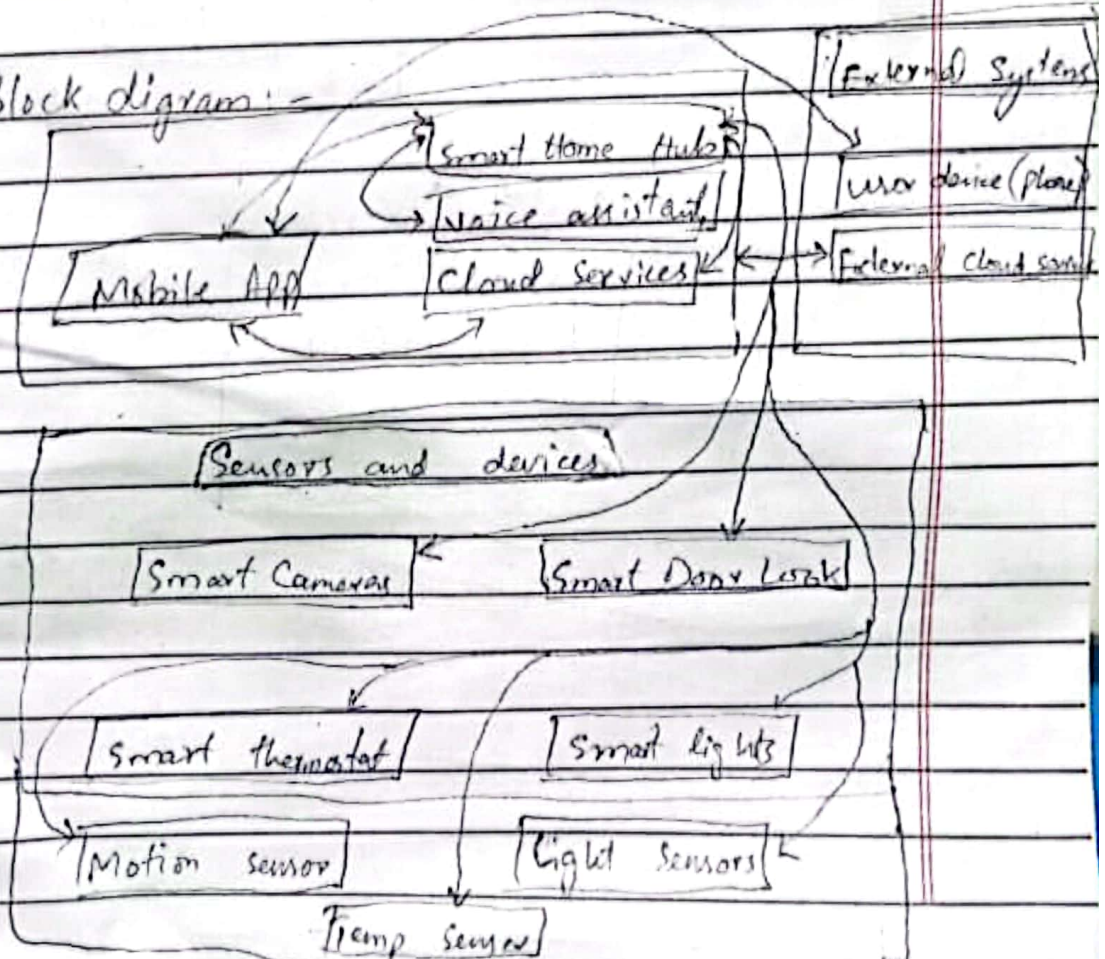 Block digram:-
External Systems
Smart Home Hub
user device (phone)
Voice assistant
External cloud service
Mobile APP
Cloud Services
Sensors and devices
Smart Cameras
Smart Door Look
Smart thermostat
Smart lights
Motion sensor
Light sensors
Temp sensor